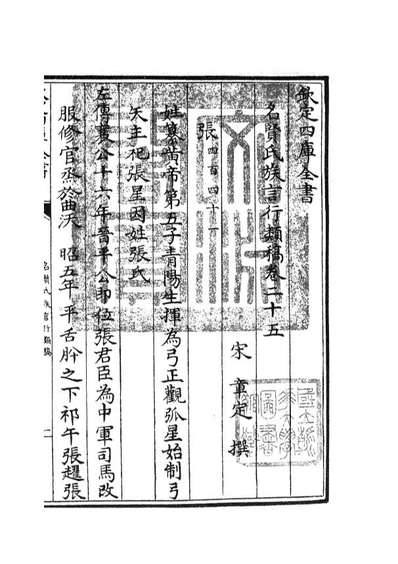 欽定四庫全書
名賢氏族言行類稿卷二十五
宋 章定 撰
張 四百四十一
姓纂黃帝第五子青陽生揮為弓正觀弧星始制弓
矢主祀張星因姓張氏
左傳襄公十六年晉平公即位張君臣為中軍司馬改
服修官烝於曲沃 昭五年羊舌肸之下祁午張趯張
名賢氏族言行類稿